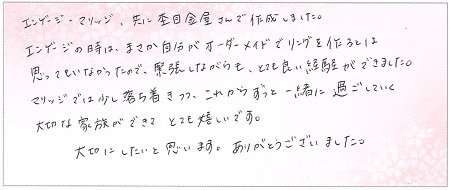 エンゲージ・マリッジ、共に杢目金屋さんで作成しました。
エンゲージの時は、まさか自分がオーダーメイドでリングを作るとは
思ってもいなかったので、緊張しながらも、とても良い経験ができました。
マリッジでは少し落ち着きつつ、これからずっと一緒に過ごしていく
大切な家族ができて とても嬉しいです。
大切にしたいと思います。ありがとうございました。